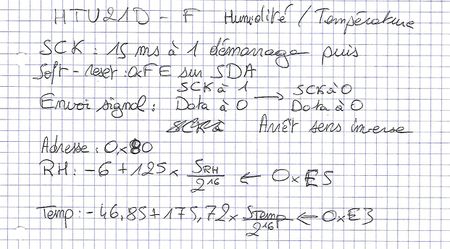 HTU21D - F Humidité / Température
SCK : 15 ms à 1 démarrage puis
Soft-reset : 0xFE sur SDA
Envoi signal : SCK à 1 Data à 0 → SCK à 0 Data à 0
SCK à Arrêt sens inverse
Adresse : 0x80
RH : -6 + 125 × SRH / 2^16 ← 0xE5
Temp : -46,85 + 175,72 × STemp / 2^16 ← 0xE3